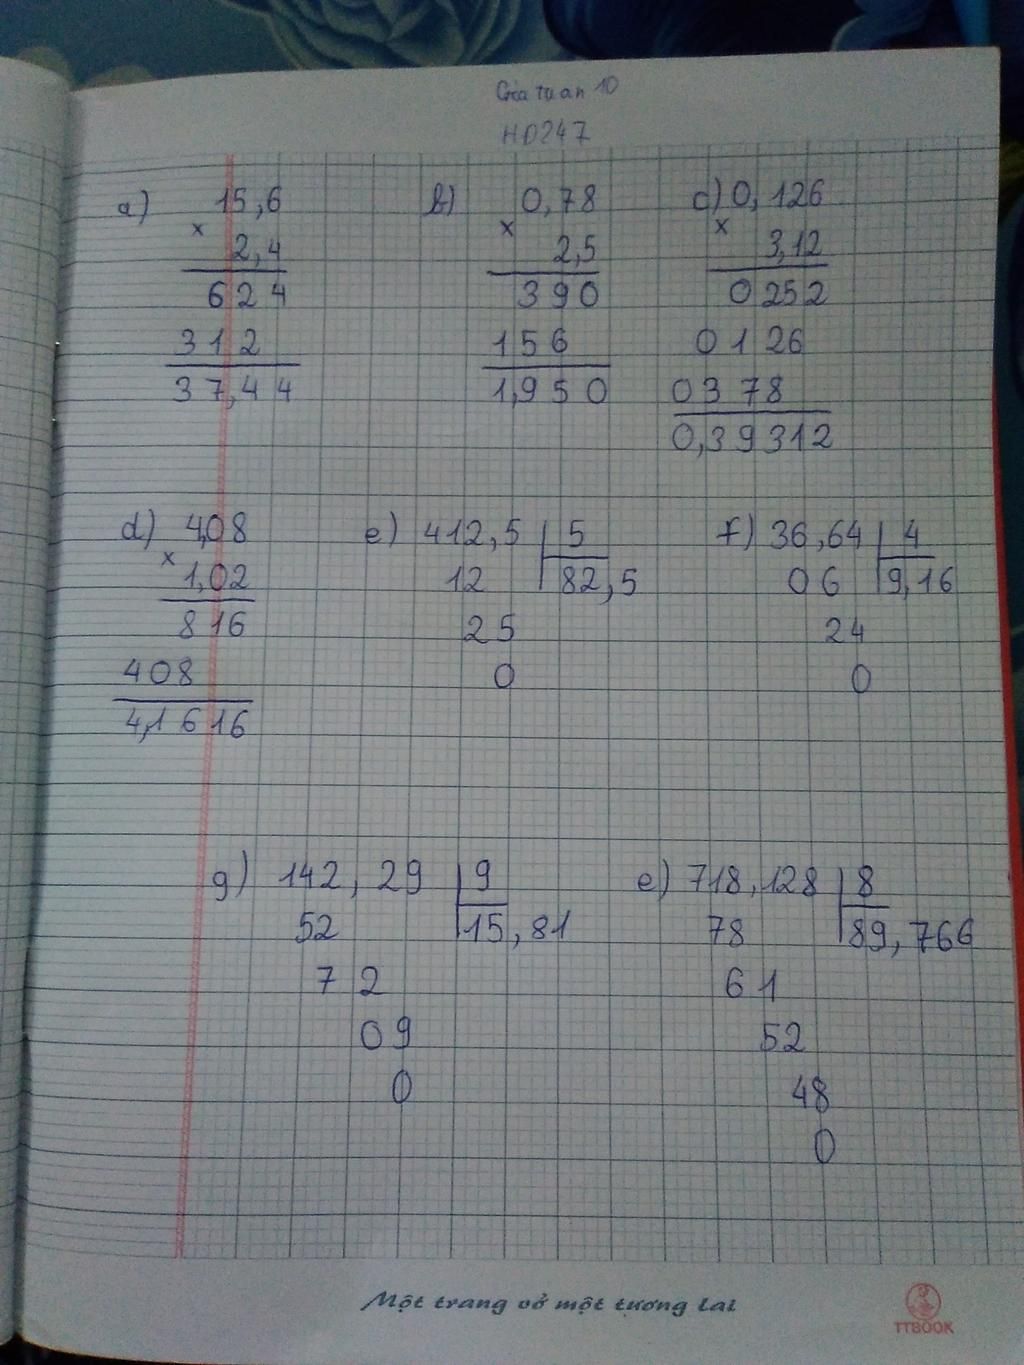 HD247
a) 15,6 b) 0,78 c) 0,126
x x x
2,4 2,5 3,12
624 390 0252
312 156 0126
37,44 1,950 0378
0,39312
d) 4,08 e) 412,5 5 f) 36,64 4
x 1,02 12 82,5 06 9,16
816 25 24
408 0 0
4,1616
g) 142,29 9 e) 718,128 8
52 15,81 78 89,766
72 61
09 52
0 48
0
Một trang vở một tương lai
TTBOOK